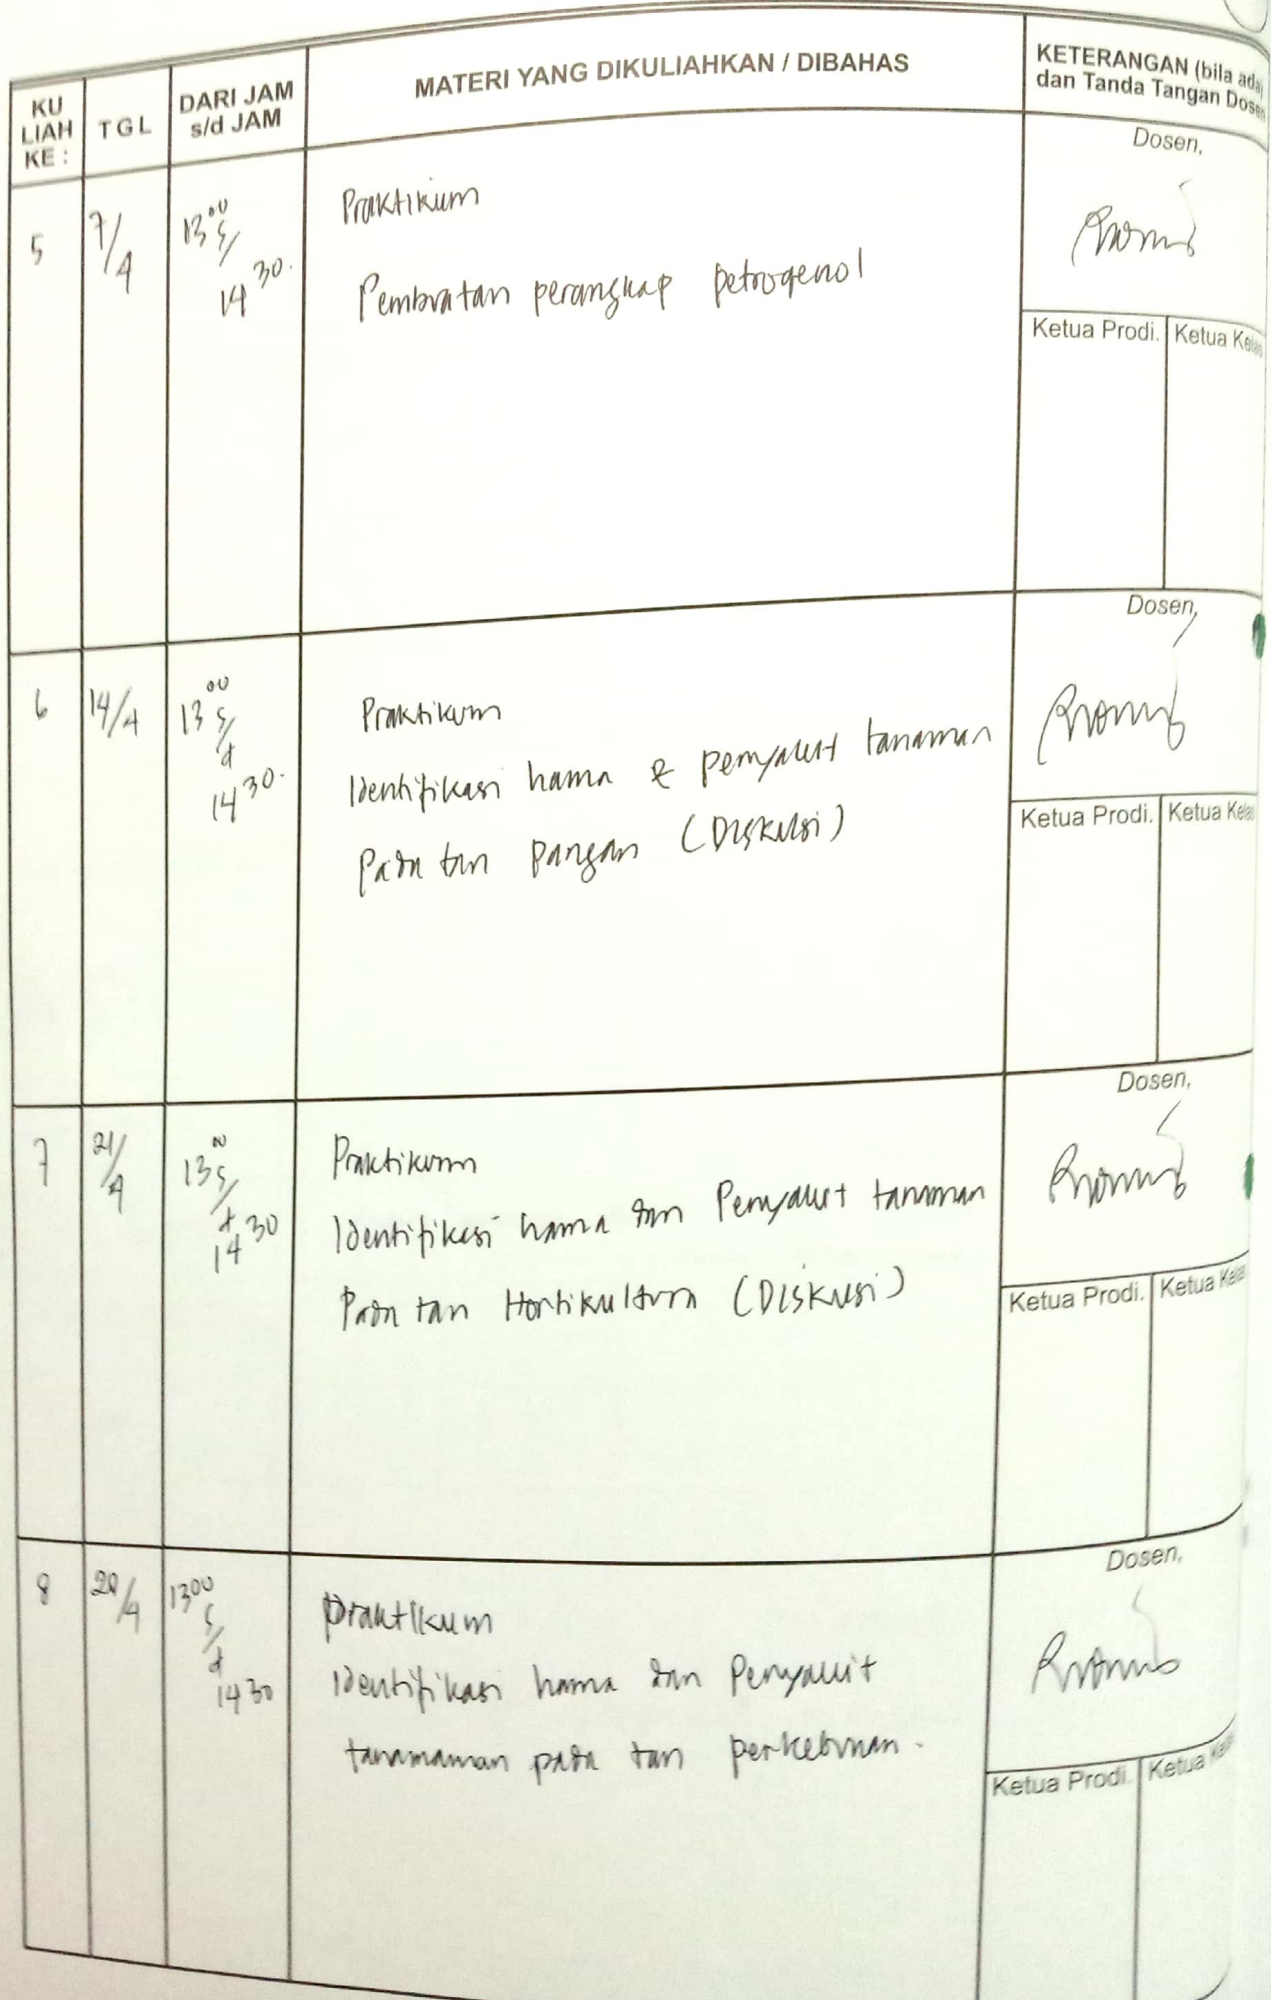 KU
LIAH
KE :
TGL
DARI JAM
s/d JAM
MATERI YANG DIKULIAHKAN / DIBAHAS
KETERANGAN (bila ada)
dan Tanda Tangan Dosen
5
7/4
13 00
s/
14 30.
Praktikum
Pembuatan perangkap petrogenol
Dosen,
Ketua Prodi.
Ketua Kelas
6
14/4
13 00
s/d
14 30.
Praktikum
Identifikasi hama & penyakit tanaman
pada tan pangan (Diskusi)
Dosen,
Ketua Prodi.
Ketua Kelas
7
21/4
13 00
s/d
14 30
Praktikum
Identifikasi hama dan Penyakit tanaman
Pada tan Hortikultura (Diskusi)
Dosen,
Ketua Prodi.
Ketua Kelas
8
/4
13 00
s/d
14 30
Praktikum
Identifikasi hama dan Penyakit
tanamaman pada tan perkebunan.
Dosen,
Ketua Prodi.
Ketua Kelas